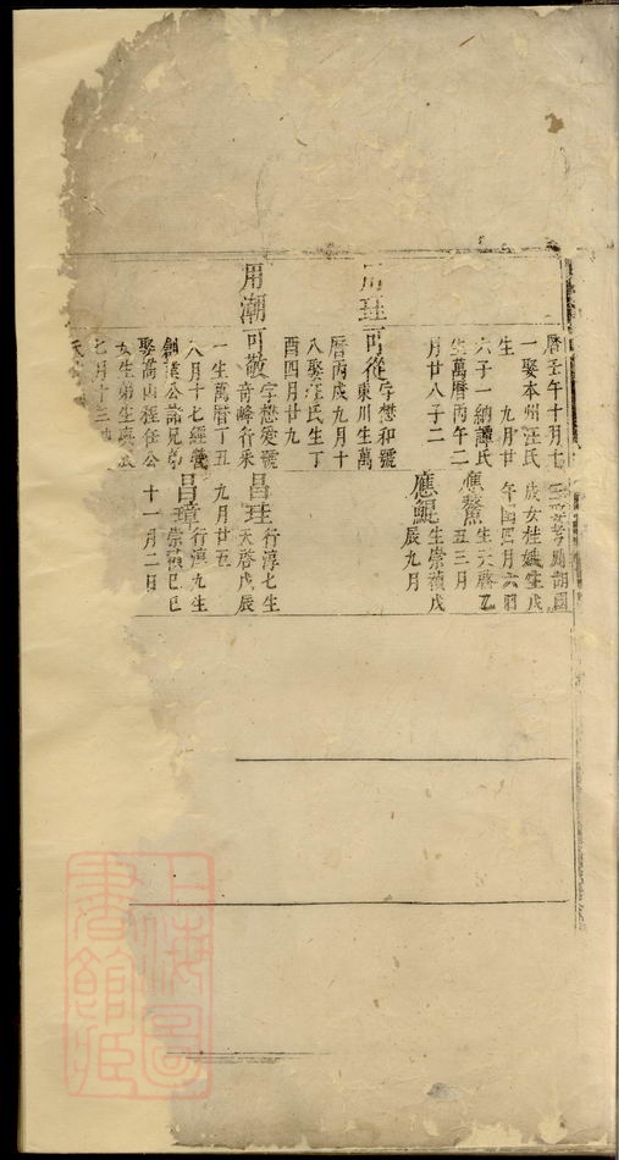 用珪
用潮
曆壬午十月十
一娶本州汪氏
生 九月廿
六子一納譚氏
生萬曆丙午二
月廿八子二
可從
字懋和號
東川生萬
曆丙戌九月十
八娶汪氏生丁
酉四月廿九
可敬
字懋愛號
奇峰行釆
一生萬曆丁丑
八月十七經營
創業公諸兄弟
娶高山程任公
女生弟生
七月十三
氏
歲女桂娥生戊
午 四月六
應鰲
生天啓乙
丑三月
應鯤
生崇禎戊
辰九月
昌珪
行淳七生
天啓戊辰
九月廿五
昌璋
行淳九生
崇禎己巳
十一月二日
上海圖
書館藏